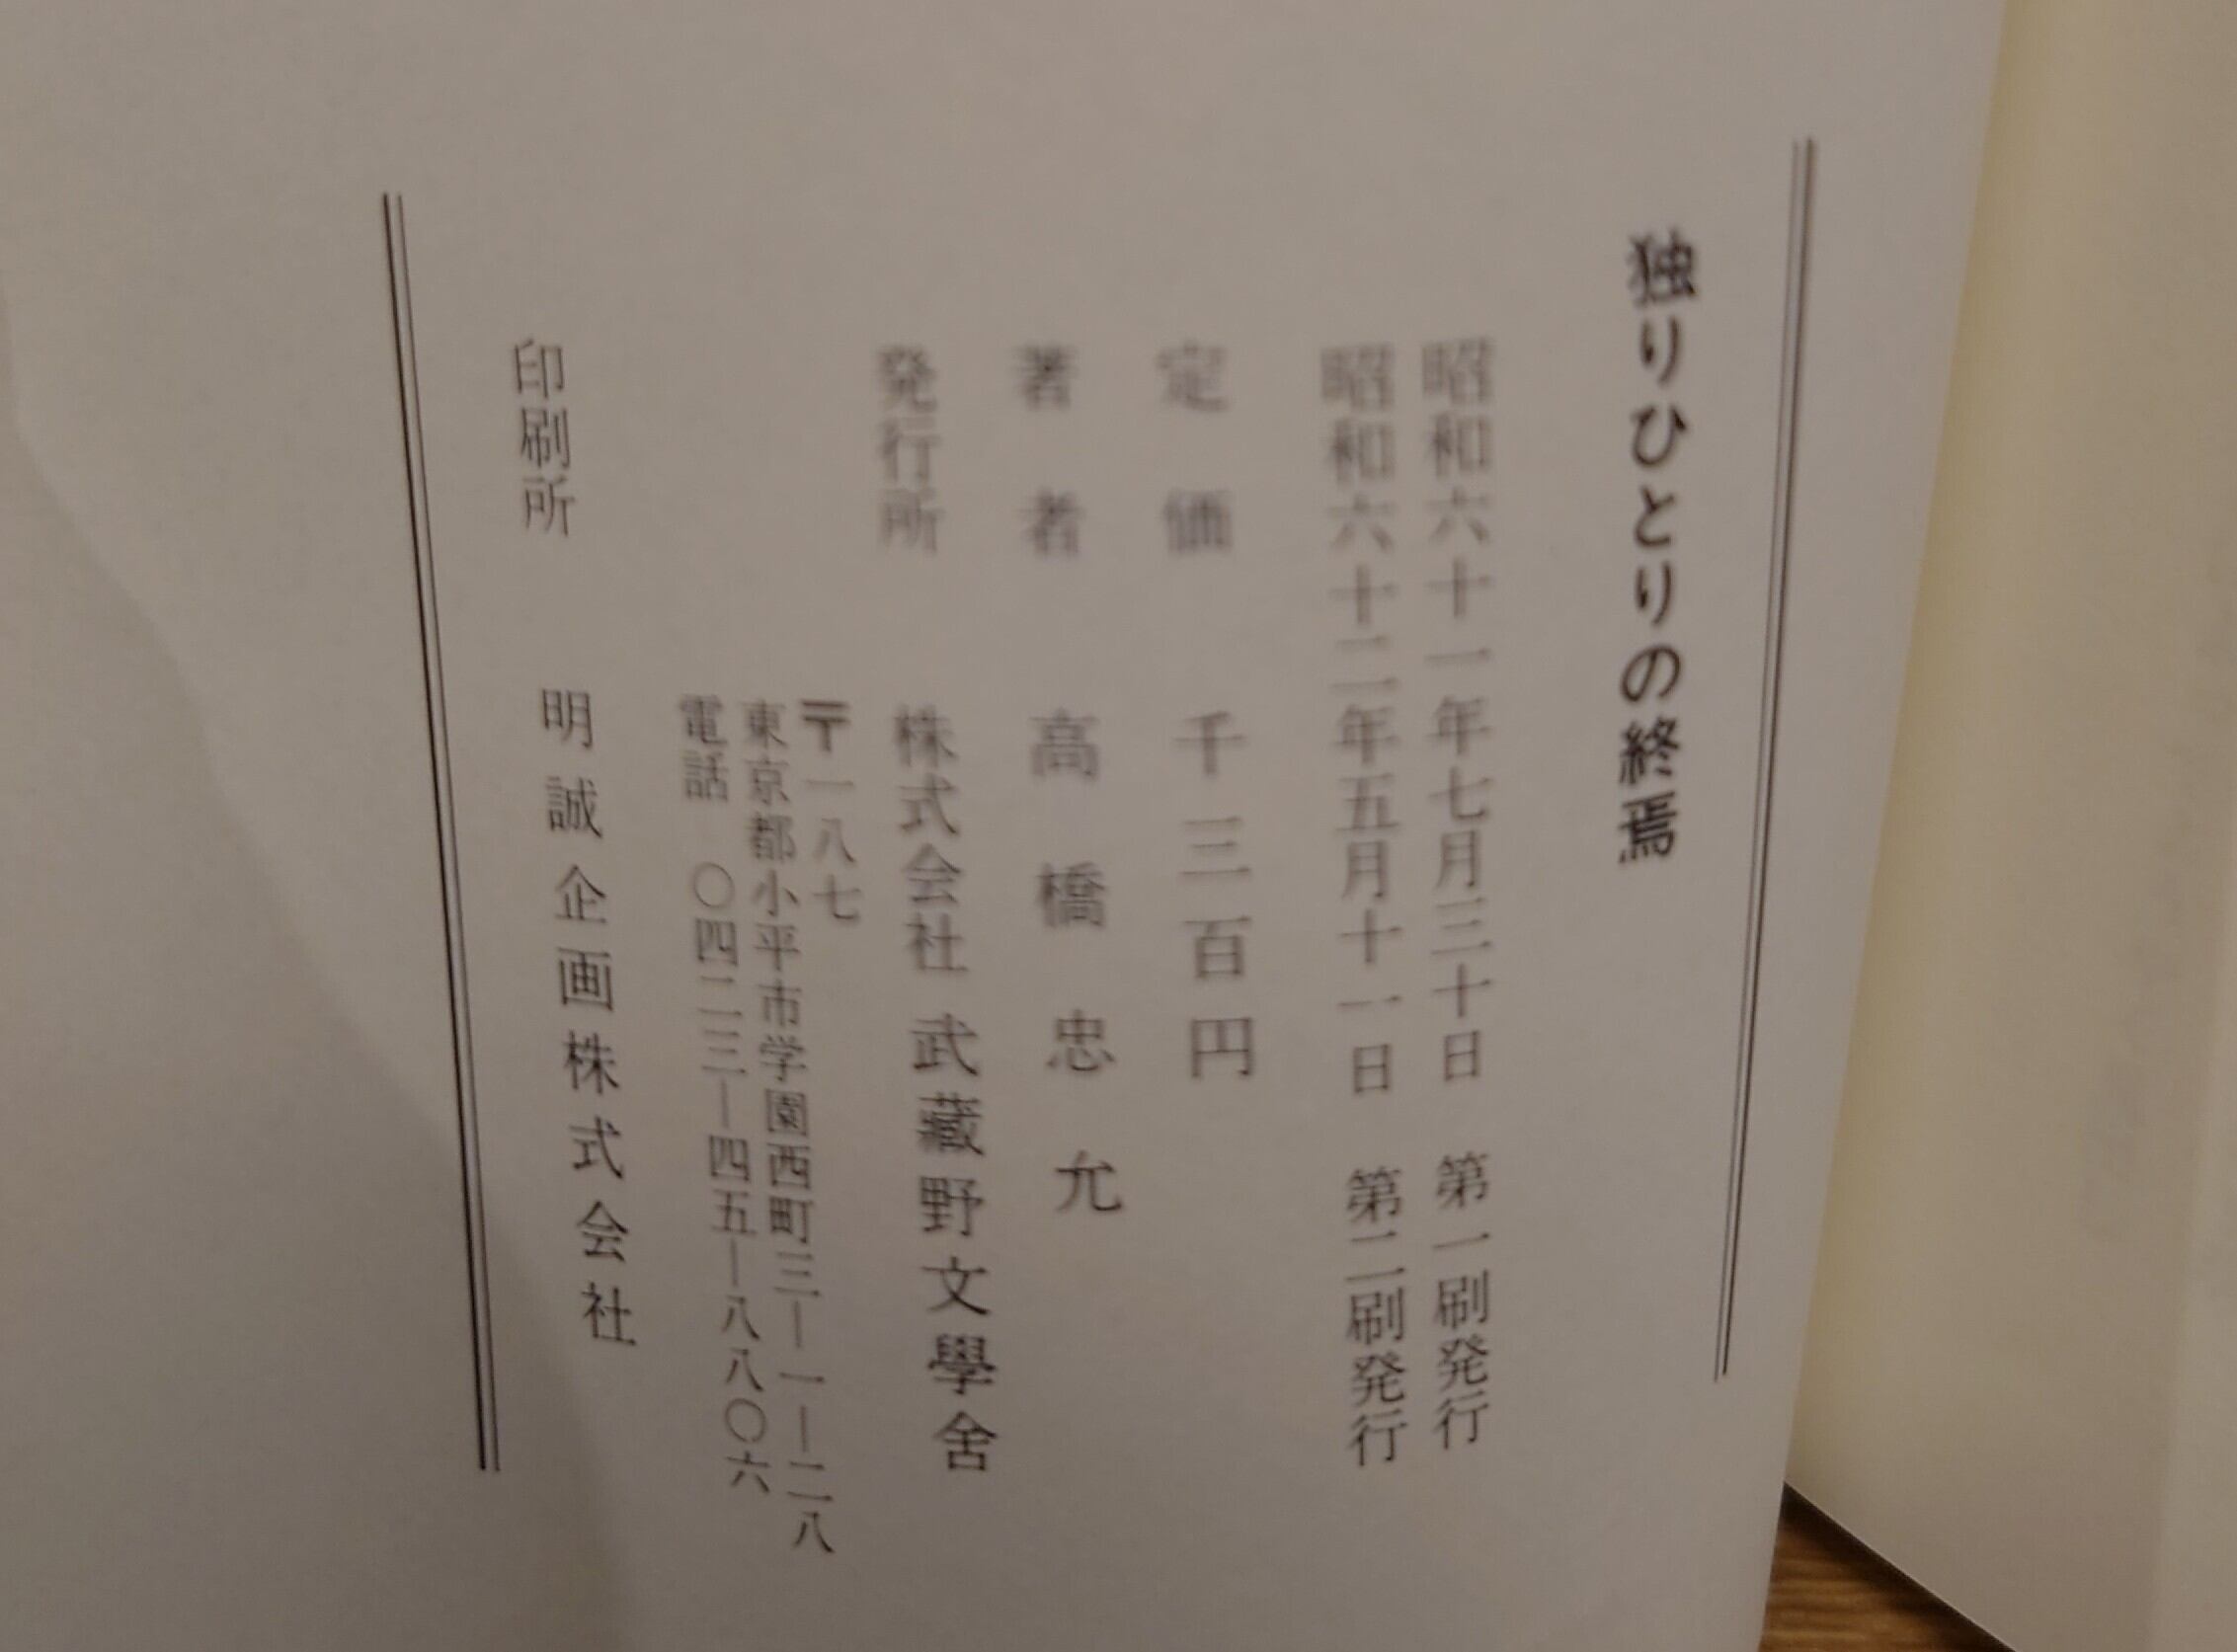 独りひとりの終焉
昭和六十一年七月三十日　第一刷発行
昭和六十二年五月十一日　第二刷発行
定価　千三百円
著者　高橋忠允
発行所　株式会社 武蔵野文學舎
〒一八七
東京都小平市学園西町三―一―二八
電話　〇四二三―四五―八八〇六
印刷所　明誠企画株式会社